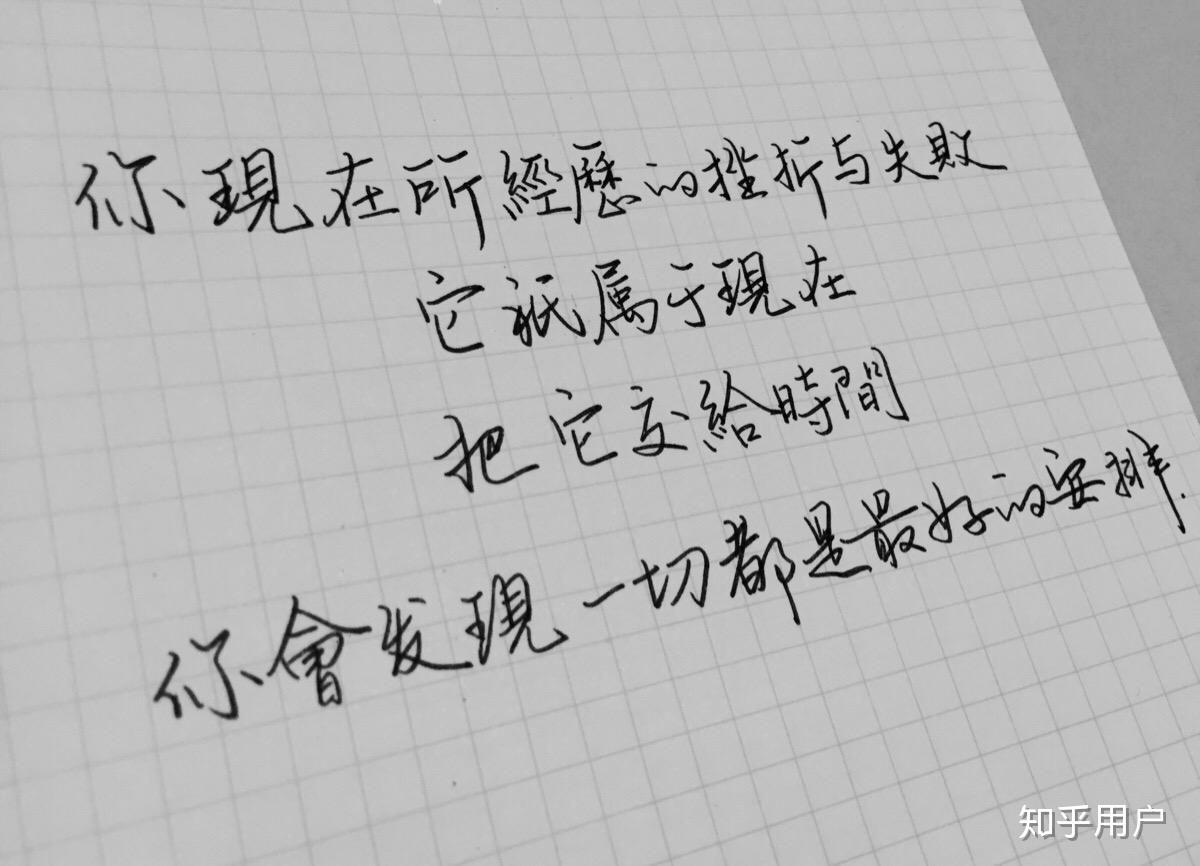 你現在所經歷的挫折与失敗
它祇属于現在
把它交給時間
你會发現一切都是最好的安排.
知乎用户